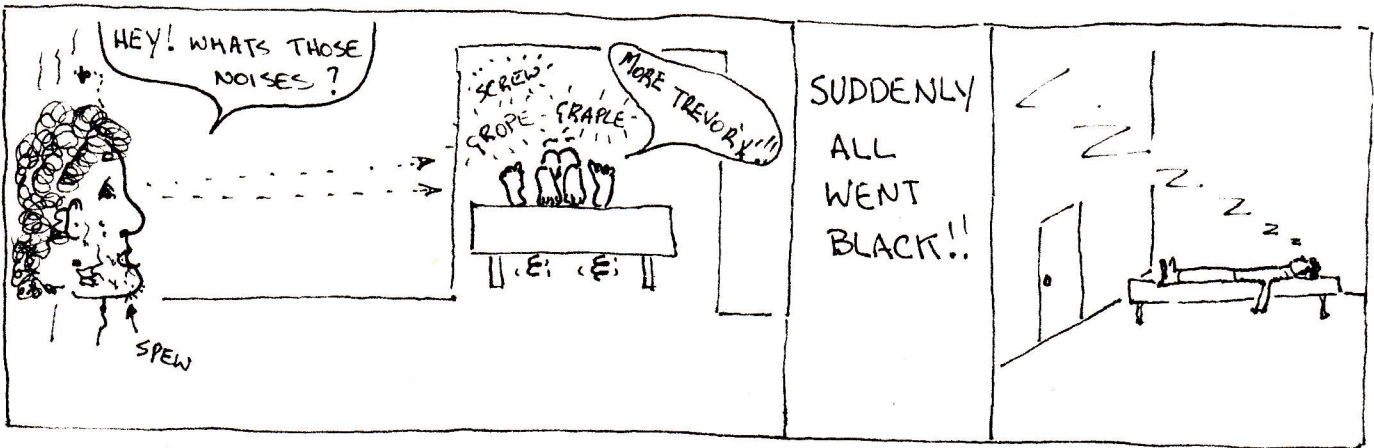 HEY! WHATS THOSE
NOISES?
SPEW
SCREW
GROPE - GRAPLE -
MORE
TREVOR
SUDDENLY
ALL
WENT
BLACK!!
Z
Z
Z
Z
Z
Z